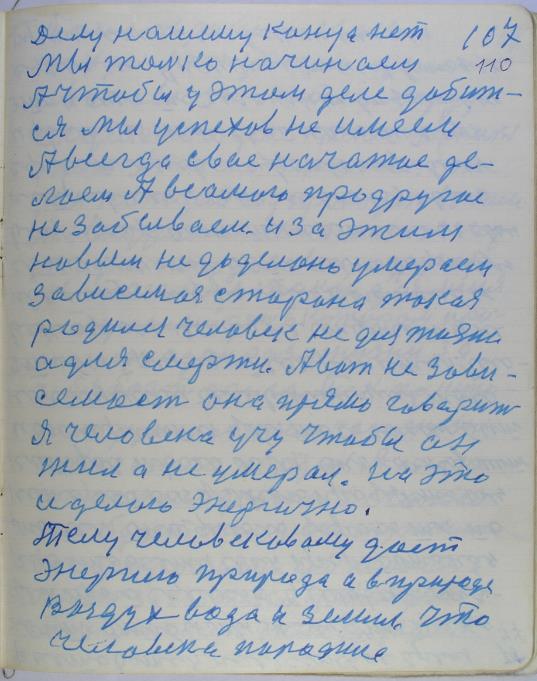 Делу нашему конца нет 107
Мы только начинаем 110
А чтобы у этом деле добит-
ся Мы успехов не имеем
А всегда свае начатое де-
лаем А всамого продругое
не забываем. И за этим
новым не доделано умераем
Зависемая сторона такая
родился человек не для жизни
а для смерти. А вот не зави-
семост она прямо говарит
я человека учу чтобы он
жил а не умерал. на это
и делаю энергично.
Телу человековому дает
энергию природа а в природе
Воздух вода и земля. Что
человека породив